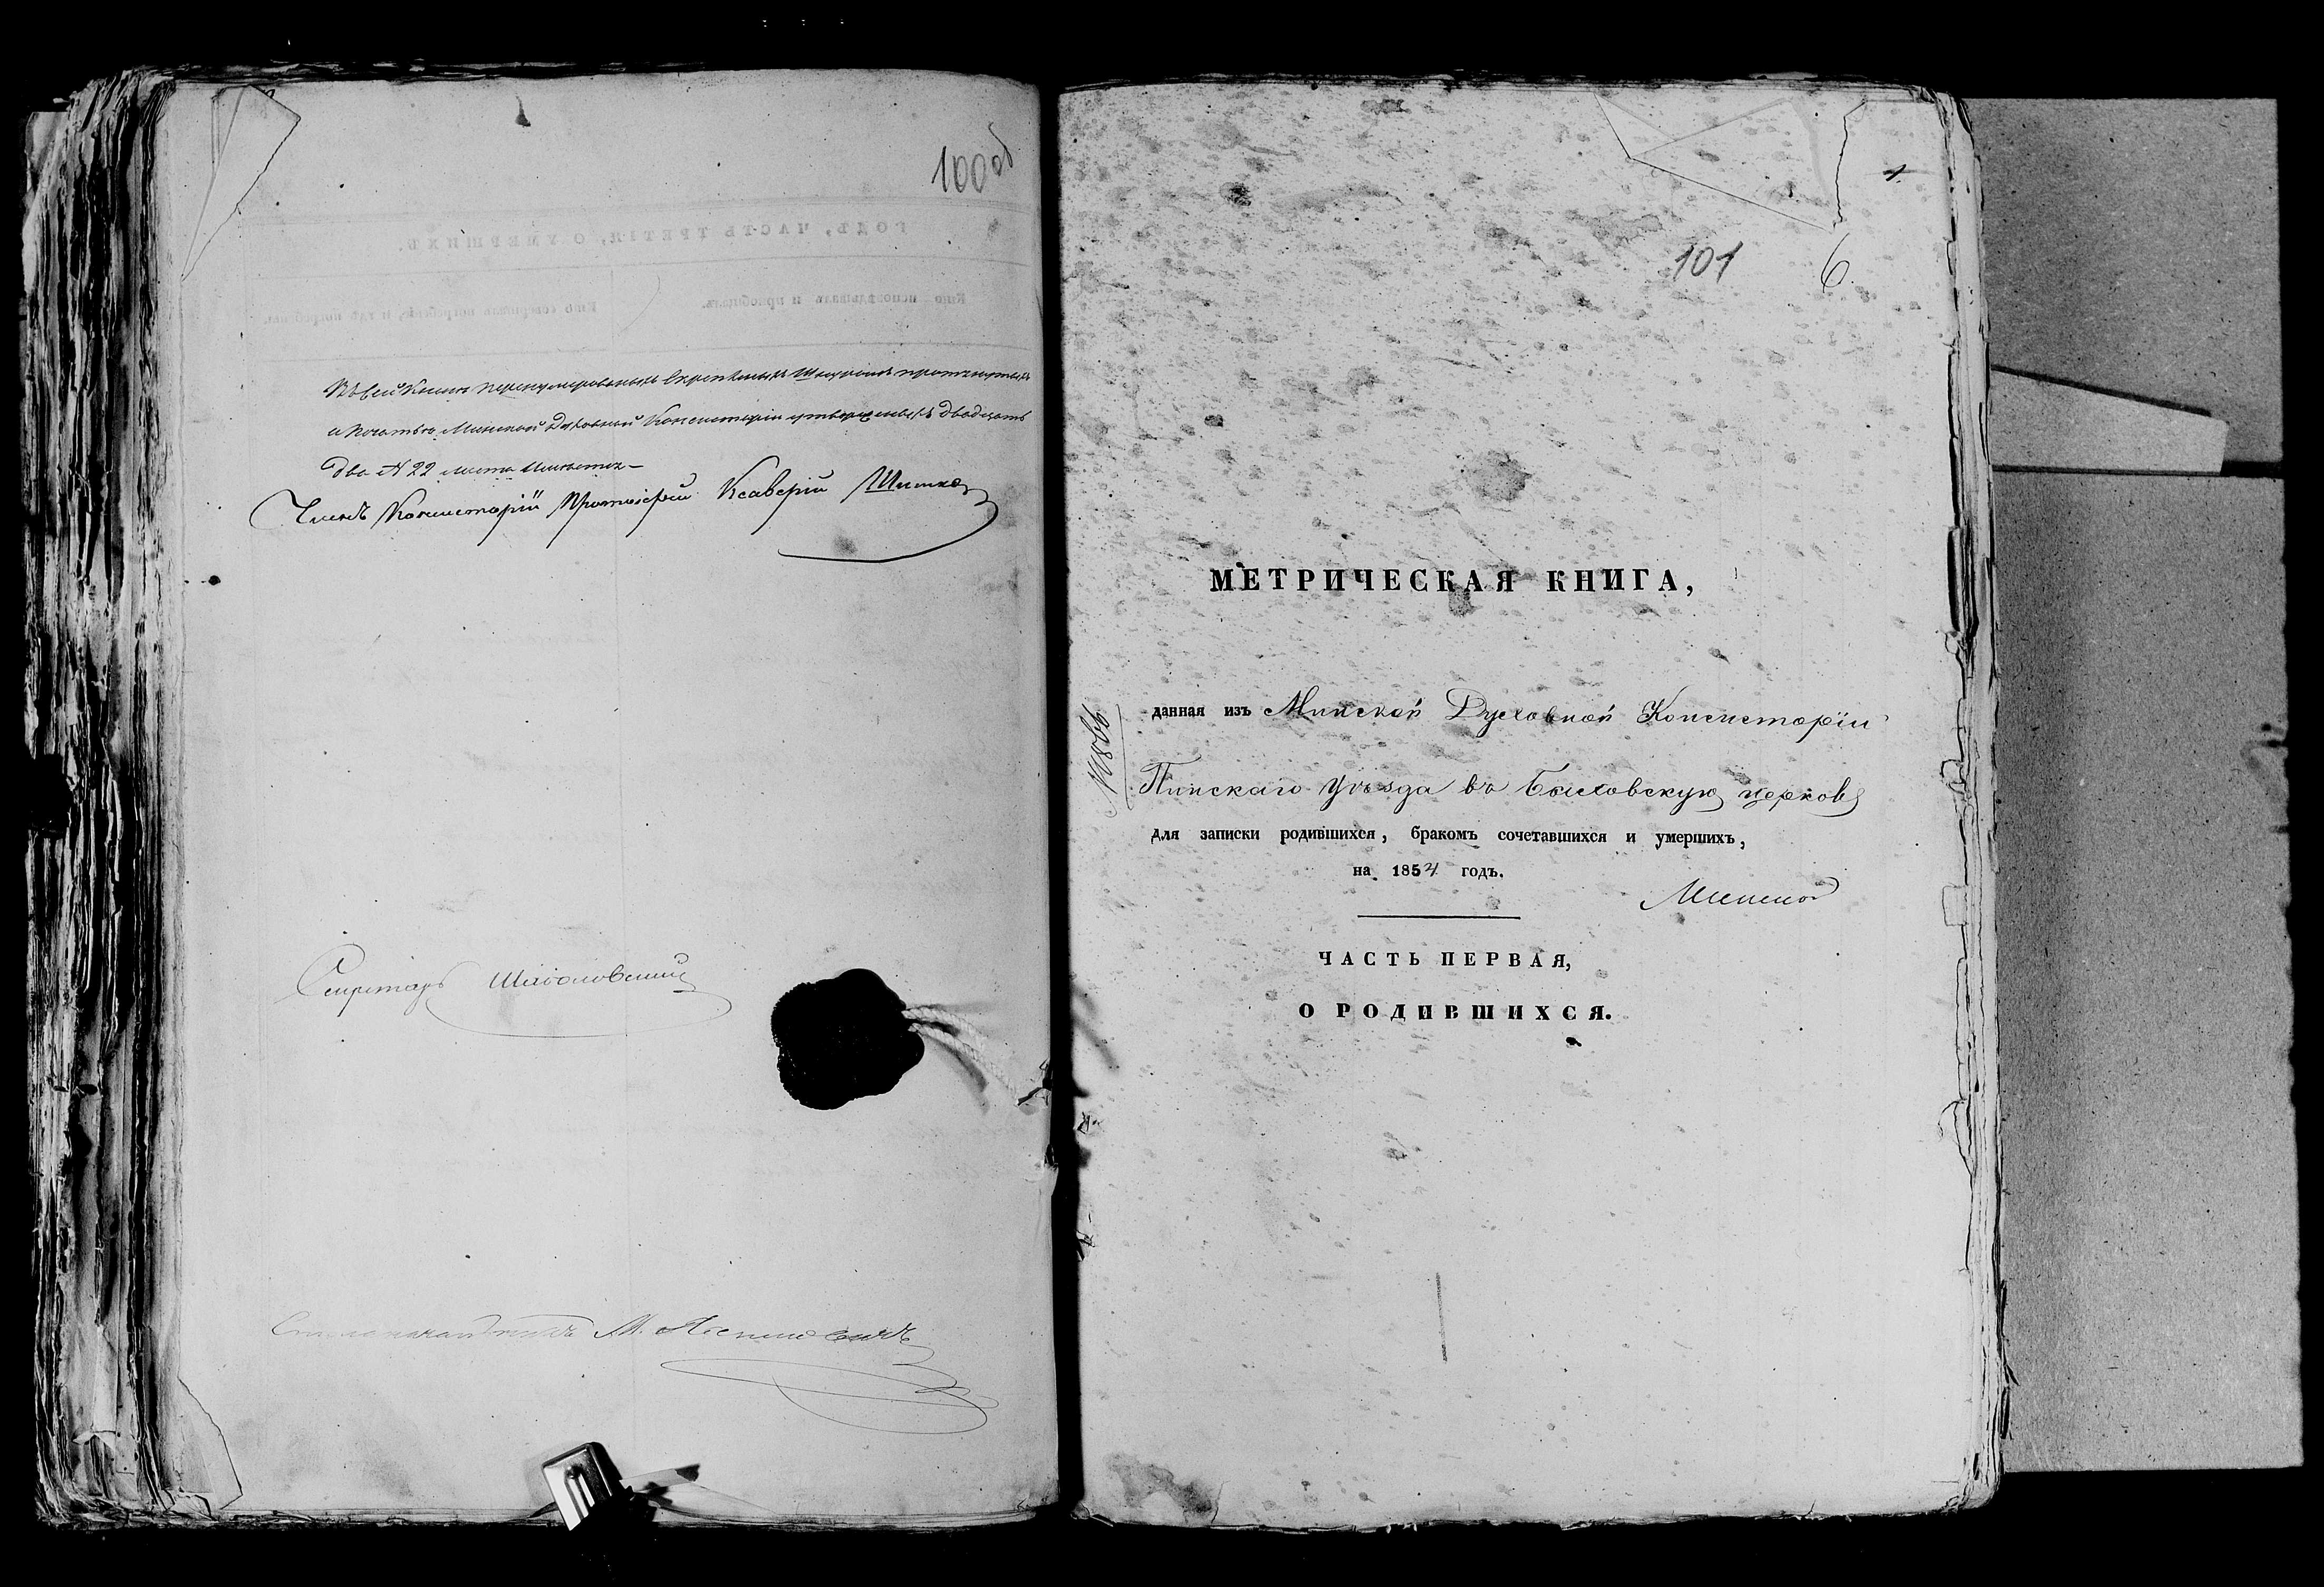 100 об
ГОДЪ, ЧАСТЬ ТРЕТІЯ, О УМЕРШИХЪ.
Кто исповѣдывалъ и пріобщалъ.
Кто совершалъ погребеніе, и гдѣ погребены.
Въ сей Книгѣ перенумерованныхъ скрепленныхъ Шнуромъ протянутыхъ
и печатью Минской Духовной Консисторіи утвержденныхъ двадцать
два № 22 листа
Членъ Консисторіи Протоіерей Ксаверій
Секретарь
Столоначальникъ М.
1.
101
6.
МЕТРИЧЕСКАЯ КНИГА,
данная изъ Минской Духовной Консисторіи
Пинскаго уѣзда въ Бысховскую церковь
для записки родившихся, бракомъ сочетавшихся и умершихъ,
на 1854 годъ.
ЧАСТЬ ПЕРВАЯ,
О РОДИВШИХСЯ.